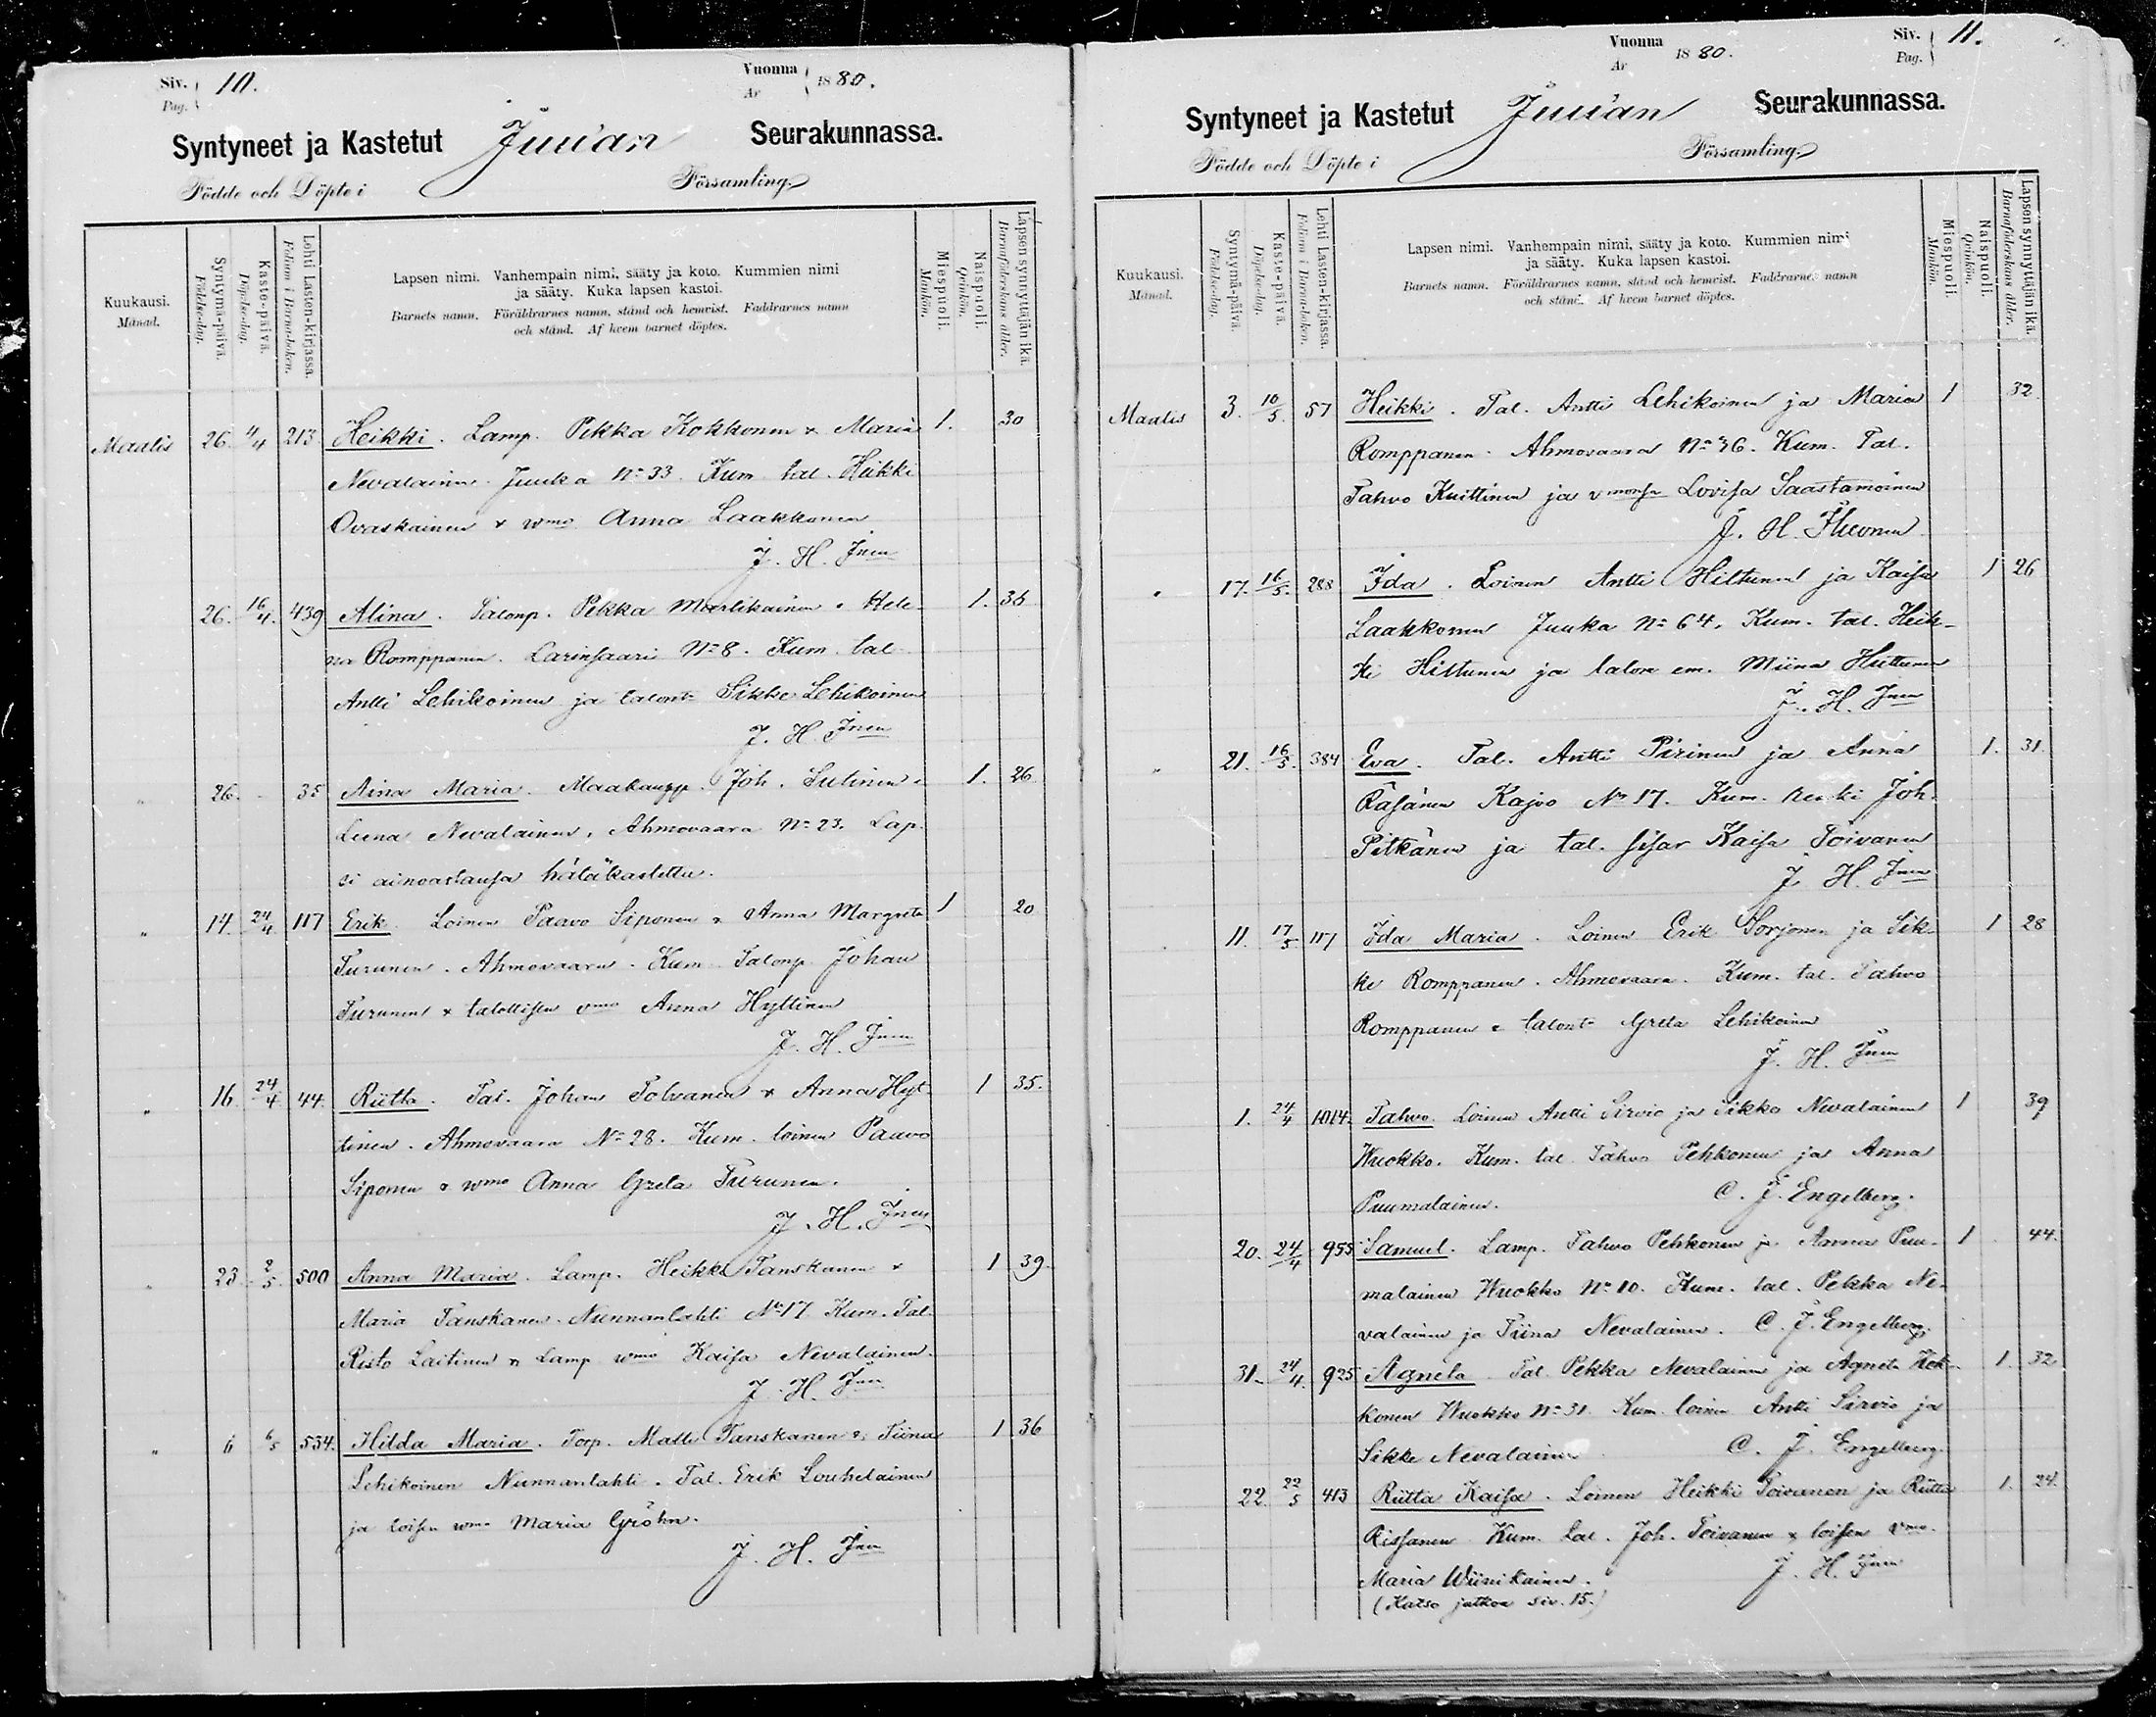 Siv. 10.
Pag.
Vuonna 1880.
Ar
Syntyneet ja Kastetut Juuan Seurakunnassa.
Födde och Döpte i Församling.
Kuukausi.
Månad.
Syntymä-päivä.
Födelse-dag.
Kaste-päivä.
Döpelse-dag.
Lehti Lasten-kirjassa.
Folium i Barnaboken.
Lapsen nimi. Vanhempain nimi, sääty ja koto. Kummien nimi
ja sääty. Kuka lapsen kastoi.
Barnets namn. Föräldrarnes namn, stånd och hemvist. Faddrarnes namn
och stånd. Af hvem barnet döptes.
Miespuoli.
Mankön.
Naispuoli.
Qvinkön.
Lapsen synnyttäjän ikä.
Barnaföderskans ålder.
Maalis 26. 4/4 213 Heikki. Lamp. Pekka Kokkonen & Maria 1. 30
Nevalainen. Juuka No 33. Kum. tal. Heikki
Ovaskainen & wmo Anna Laakkonen
J. H. Jnen
26. 16/4. 439 Alina. Talonp. Pekka Martikainen & Hele- 1. 36
na Romppanen. Larinsaari No 8. Kum. tal.
Antti Lehikoinen ja talont. Sikke Lehikoinen
J. H. Jnen
" 26. - 35 Aina Maria. Maakaupp. Joh. Sutinen & 1. 26
Leena Nevalainen, Ahmovaara No 23. Lap.
si ainoastansa hätäkastettu.
" 14. 24/4 117 Erik. Loinen Paavo Siponen & Anna Margreta 1 20
Turunen. Ahmovaara. Kum. Talonp. Johan
Turunen & talollisen vmo Anna Hyttinen
J. H. Jnen
" 16. 24/4 44. Riitta. Tal. Johan Tolvanen & Anna Hyt- 1 35.
tinen. Ahmovaara No 28. Kum. loinen Paavo
Siponen & wmo Anna Greta Turunen.
J. H. Jnen
" 23. 2/5. 500 Anna Maria. Lamp. Heikki Tanskanen & 1 39.
Maria Tanskanen. Nunnanlahti No 17 Kum. Tal.
Risto Laitinen & Lamp wmo Kaisa Nevalainen.
J. H. Jnen
" 6 6/5 534. Hilda Maria. Torp. Matti Tanskanen & Tiina 1 36
Lehikoinen Nunnanlahti. Tal. Erik Louhelainen
ja loisen wmo Maria Gröhn.
J. H. Jnen
Vuonna 1880.
Ar
Siv. 11.
Pag.
Syntyneet ja Kastetut Juuan Seurakunnassa.
Födde och Döpte i Församling.
Kuukausi.
Månad.
Syntymä-päivä.
Födelse-dag.
Kaste-päivä.
Döpelse-dag.
Lehti Lasten-kirjassa.
Folium i Barnaboken.
Lapsen nimi. Vanhempain nimi, sääty ja koto. Kummien nimi
ja sääty. Kuka lapsen kastoi.
Barnets namn. Föräldrarnes namn, stånd och hemvist. Faddrarnes namn
och stånd. Af hvem barnet döptes.
Miespuoli.
Mankön.
Naispuoli.
Qvinkön.
Lapsen synnyttäjän ikä.
Barnaföderskans ålder.
Maalis 3. 10/5. 57 Heikki. Tal. Antti Lehikoinen ja Maria 1 32
Romppanen. Ahmovaara No 36. Kum. Tal.
Tahvo Kuittinen ja Lovisa Saastamoinen
J. H.
" 17. 16/5. 288 Ida. Loinen Antti Hiltunen ja Kaisa 1 26
Laakkonen Juuka No 64. Kum. tal. Heik-
ki Hiltunen ja talon em. Miina Hiltunen
J. H. Jnen
" 21. 16/5. 384 Eva. Tal. Antti Pirinen ja Anna 1. 31.
Räsänen Kajoo No 17. Kum. renki Joh.
Pitkänen ja tal. sisar Kaisa Toivanen
J. H. Jnen
11. 17/5 117 Ida Maria. Loinen Erik Sorjonen ja Sik- 1 28
ke Romppanen. Ahmovaara. Kum. tal. Tahvo
Romppanen & talont. Greta Lehikoinen
J. H. Jnen
1. 24/4 1014. Tahvo. Loinen Antti Sirvio ja Sikko Nevalainen 1 39
Wuokko. Kum. tal. Tahvo Pehkonen ja Anna
Puumalainen. C. J. Engelberg.
20. 24/4 955 Samuel. Lamp. Tahvo Pehkonen ja Anna Puu- 1 44.
malainen Wuokko No 10. Kum. tal. Pekka Ne-
valainen ja Tiina Nevalainen. C. J. Engelberg.
31. 24/4. 925 Agneta. Tal. Pekka Nevalainen ja Agneta Kok- 1. 32
konen Wuokko No 31. Kum. loinen Antti Sirvio ja
Sikke Nevalainen C. J. Engelberg.
22. 22/5 413 Riitta Kaisa. Loinen Heikki Toivanen ja Riitta 1. 24.
Rissanen. Kum. tal. Joh. Toivanen & loisen vmo.
Maria Wiinikainen. J. H. Jnen
(Katso jatkoa siv. 15.)